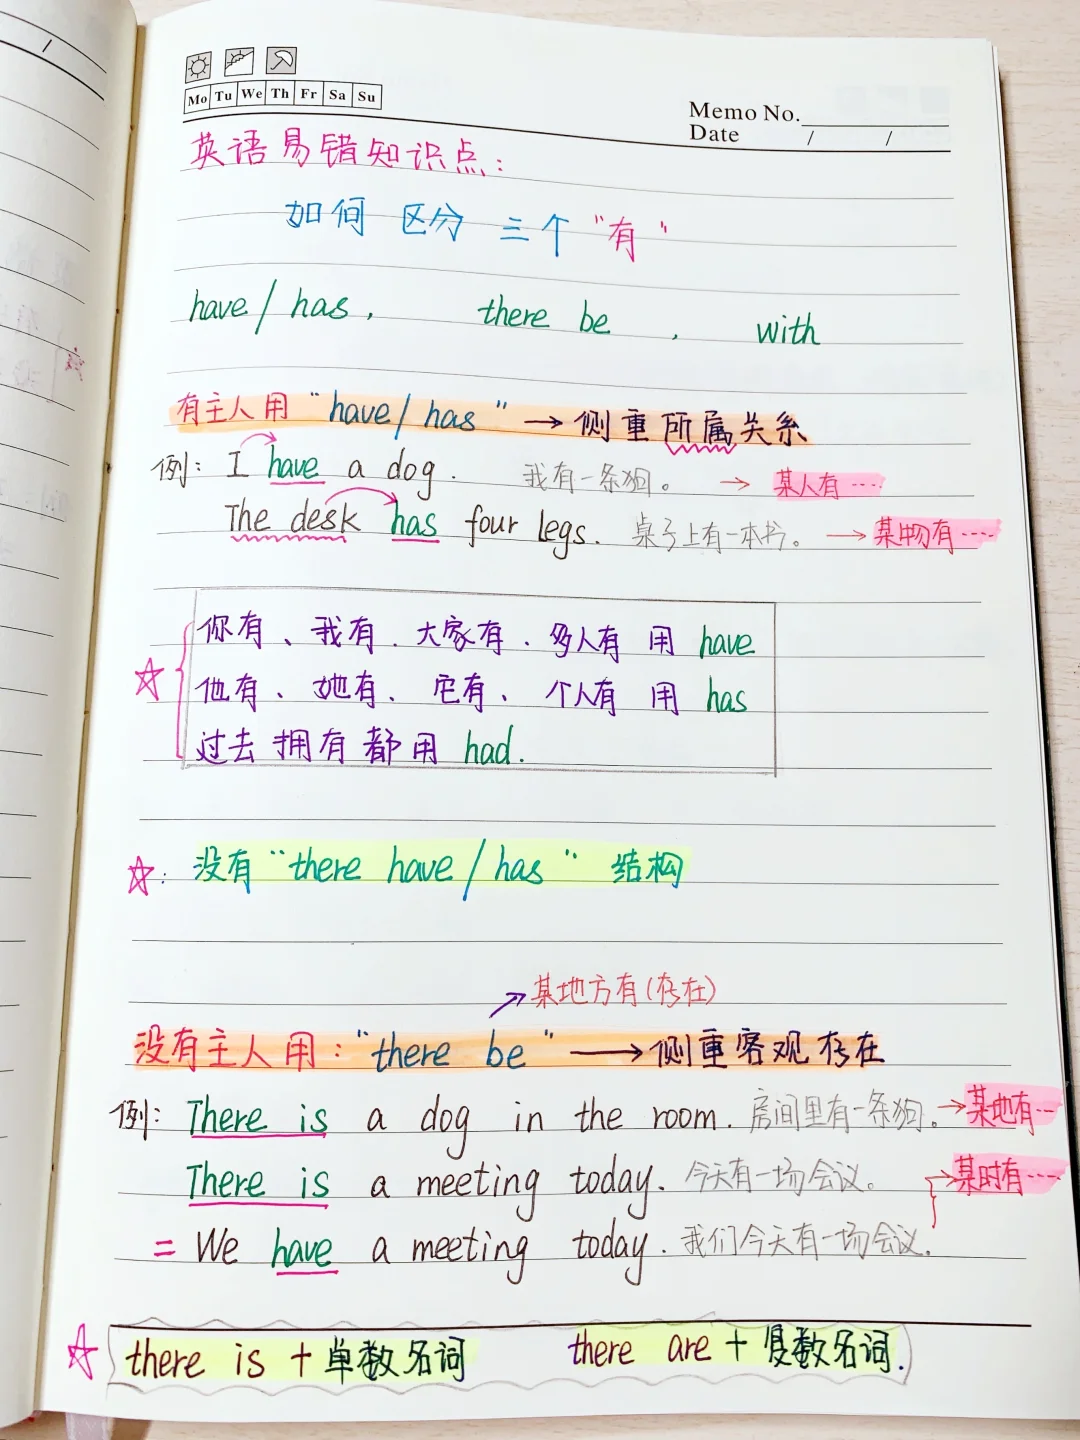 Mo Tu We Th Fr Sa Su
Memo No.
Date / /
英语易错知识点:
如何 区分 三个 "有"
have / has , there be , with
有主人用 "have / has" → 侧重所属关系
例: I have a dog. 我有一条狗。 → 某人有····
The desk has four legs. 桌子上有一本书。 → 某物有····
你有、我有、大家有、多人有 用 have
他有、她有、它有、个人有 用 has
过去拥有都用 had.
☆: 没有 "there have / has" 结构
某地方有(存在)
没有主人用: "there be" → 侧重客观存在
例: There is a dog in the room. 房间里有一条狗。 → 某地有···
There is a meeting today. 今天有一场会议。 → 某时有····
= We have a meeting today. 我们今天有一场会议.
☆ there is + 单数名词 there are + 复数名词.